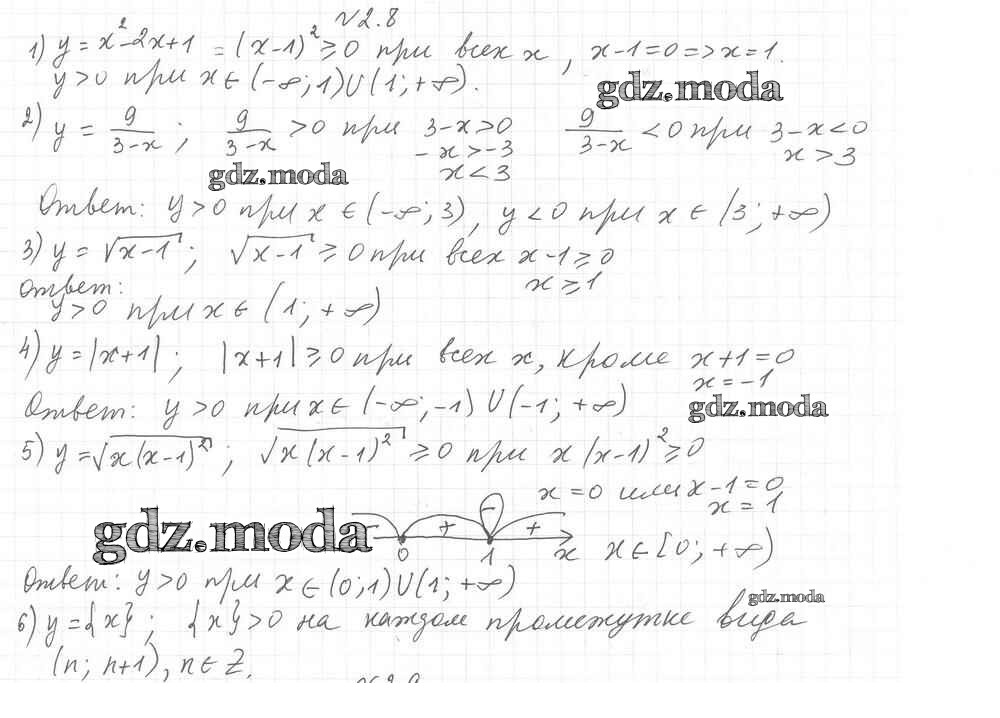 √2.8
1) y = x²-2x+1 = (x-1)² ≥ 0 при всех x, x-1=0 => x=1.
y>0 при x ∈ (-∞; 1) U (1; +∞).
gdz.moda
2) y = 9/(3-x) ; 9/(3-x) > 0 при 3-x>0 9/(3-x) < 0 при 3-x<0
-x>-3 x>3
gdz.moda x<3
Ответ: y>0 при x ∈ (-∞; 3), y<0 при x ∈ (3; +∞)
3) y = √(x-1) ; √(x-1) ≥ 0 при всех x-1 ≥ 0
Ответ: x ≥ 1
y>0 при x ∈ (1; +∞)
4) y = |x+1| ; |x+1| ≥ 0 при всех x, кроме x+1=0
x=-1
Ответ: y>0 при x ∈ (-∞; -1) U (-1; +∞) gdz.moda
5) y = √(x(x-1)²) ; √(x(x-1)²) ≥ 0 при x(x-1)² ≥ 0
x=0 или x-1=0
x=1
gdz.moda - + - +
0 1 x x ∈ [0; +∞)
Ответ: y>0 при x ∈ (0; 1) U (1; +∞)
gdz.moda
6) y = {x} ; {x}>0 на каждом промежутке вида
(n; n+1), n ∈ Z.